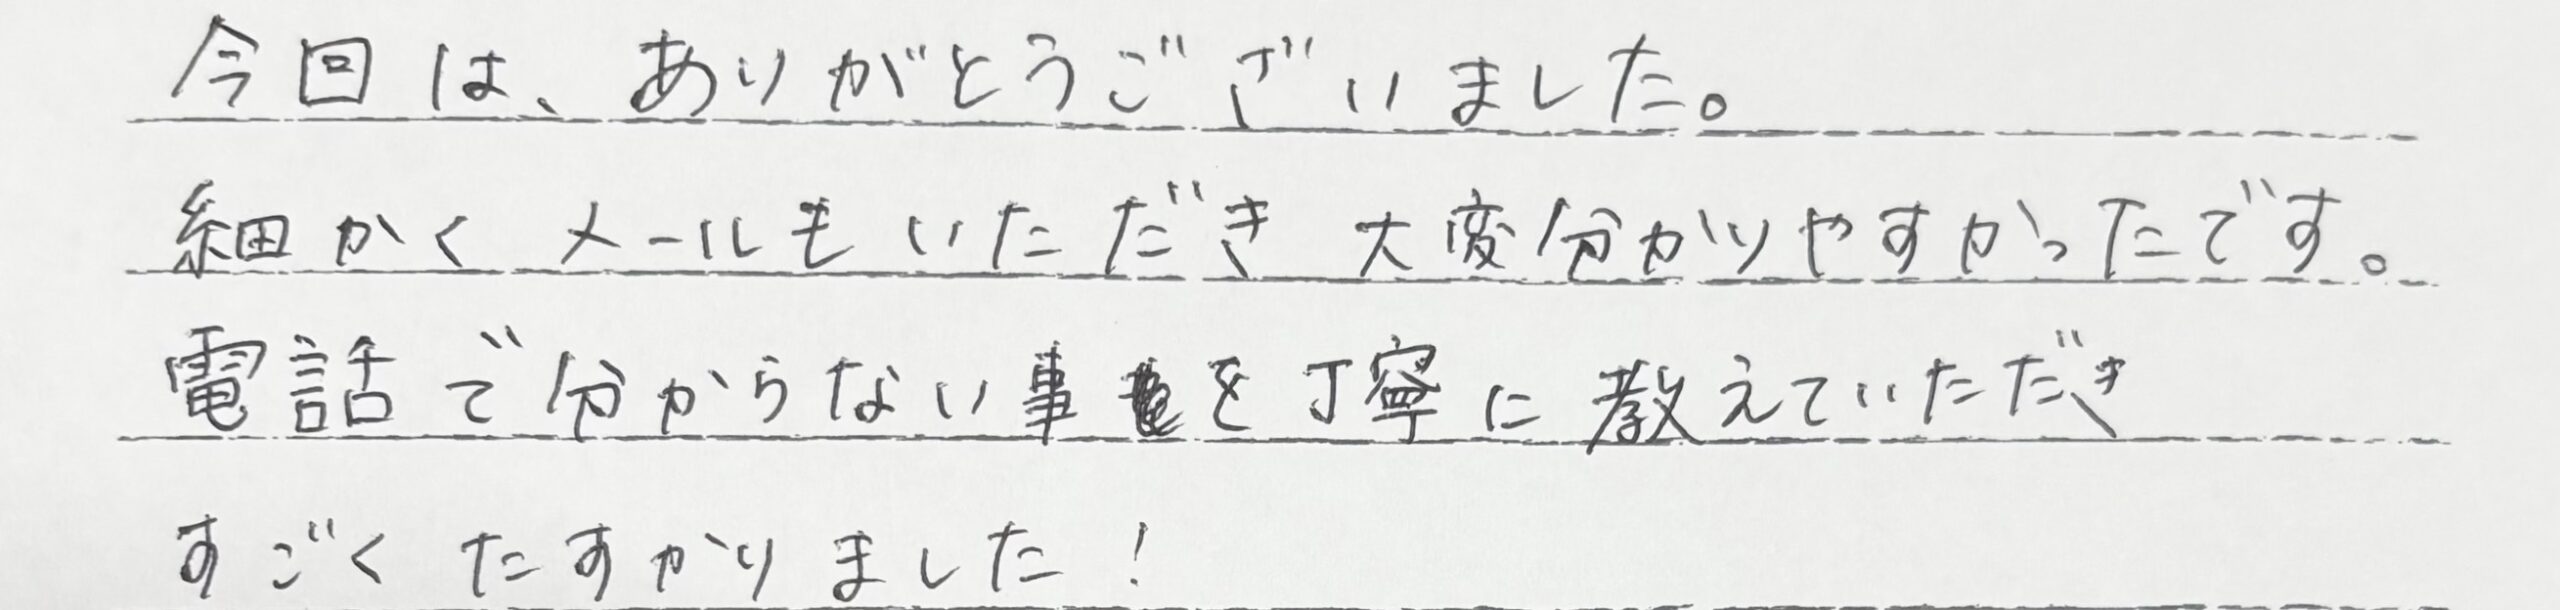 今回は、ありがとうございました。
細かくメールもいただき大変分かりやすかったです。
電話で分からない事を丁寧に教えていただき
すごくたすかりました！